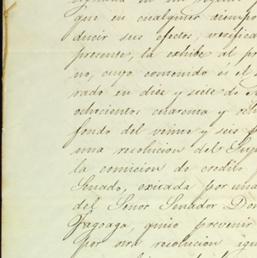 que en cualquier tiempo
ducir sus efectos, verifica
presente, la exhibe al pro
no, cuyo contenido es el s
rado en diez y siete de
ochocientos cuarenta y och
fondo del veinte y seis p
una resolucion del Sup
la comicion de credito
Senado, exitada por una
del Señor Senador Don
Fagoaga, quiso prevenir
por otra resolucion igu